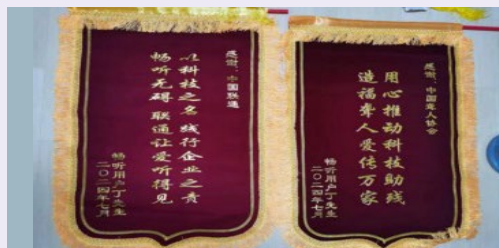 感谢：中国联通
以科技之名 践行企业之责
畅听无碍 联通让爱听得见
畅听用户丁先生
二〇二四年七月
感谢：中国聋人协会
用心推动科技助残
造福聋人爱传万家
畅听用户丁先生
二〇二四年七月